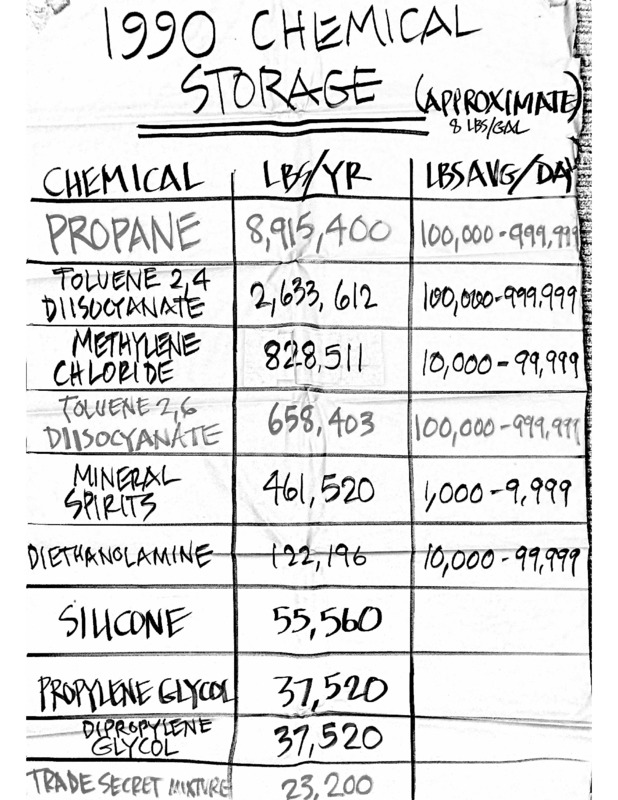 1990 CHEMICAL
STORAGE (APPROXIMATE)
8 LBS/GAL
CHEMICAL LBS/YR LBS AVG/DAY
PROPANE 8,915,400 100,000-999,999
TOLUENE 2,4
DIISOCYANATE 2,633,612 100,000-999,999
METHYLENE
CHLORIDE 828,511 10,000-99,999
TOLUENE 2,6
DIISOCYANATE 658,403 100,000-999,999
MINERAL
SPIRITS 461,520 1,000-9,999
DIETHANOLAMINE 122,196 10,000-99,999
SILICONE 55,560
PROPYLENE GLYCOL 37,520
DIPROPYLENE
GLYCOL 37,520
TRADE SECRET MIXTURE 23,200